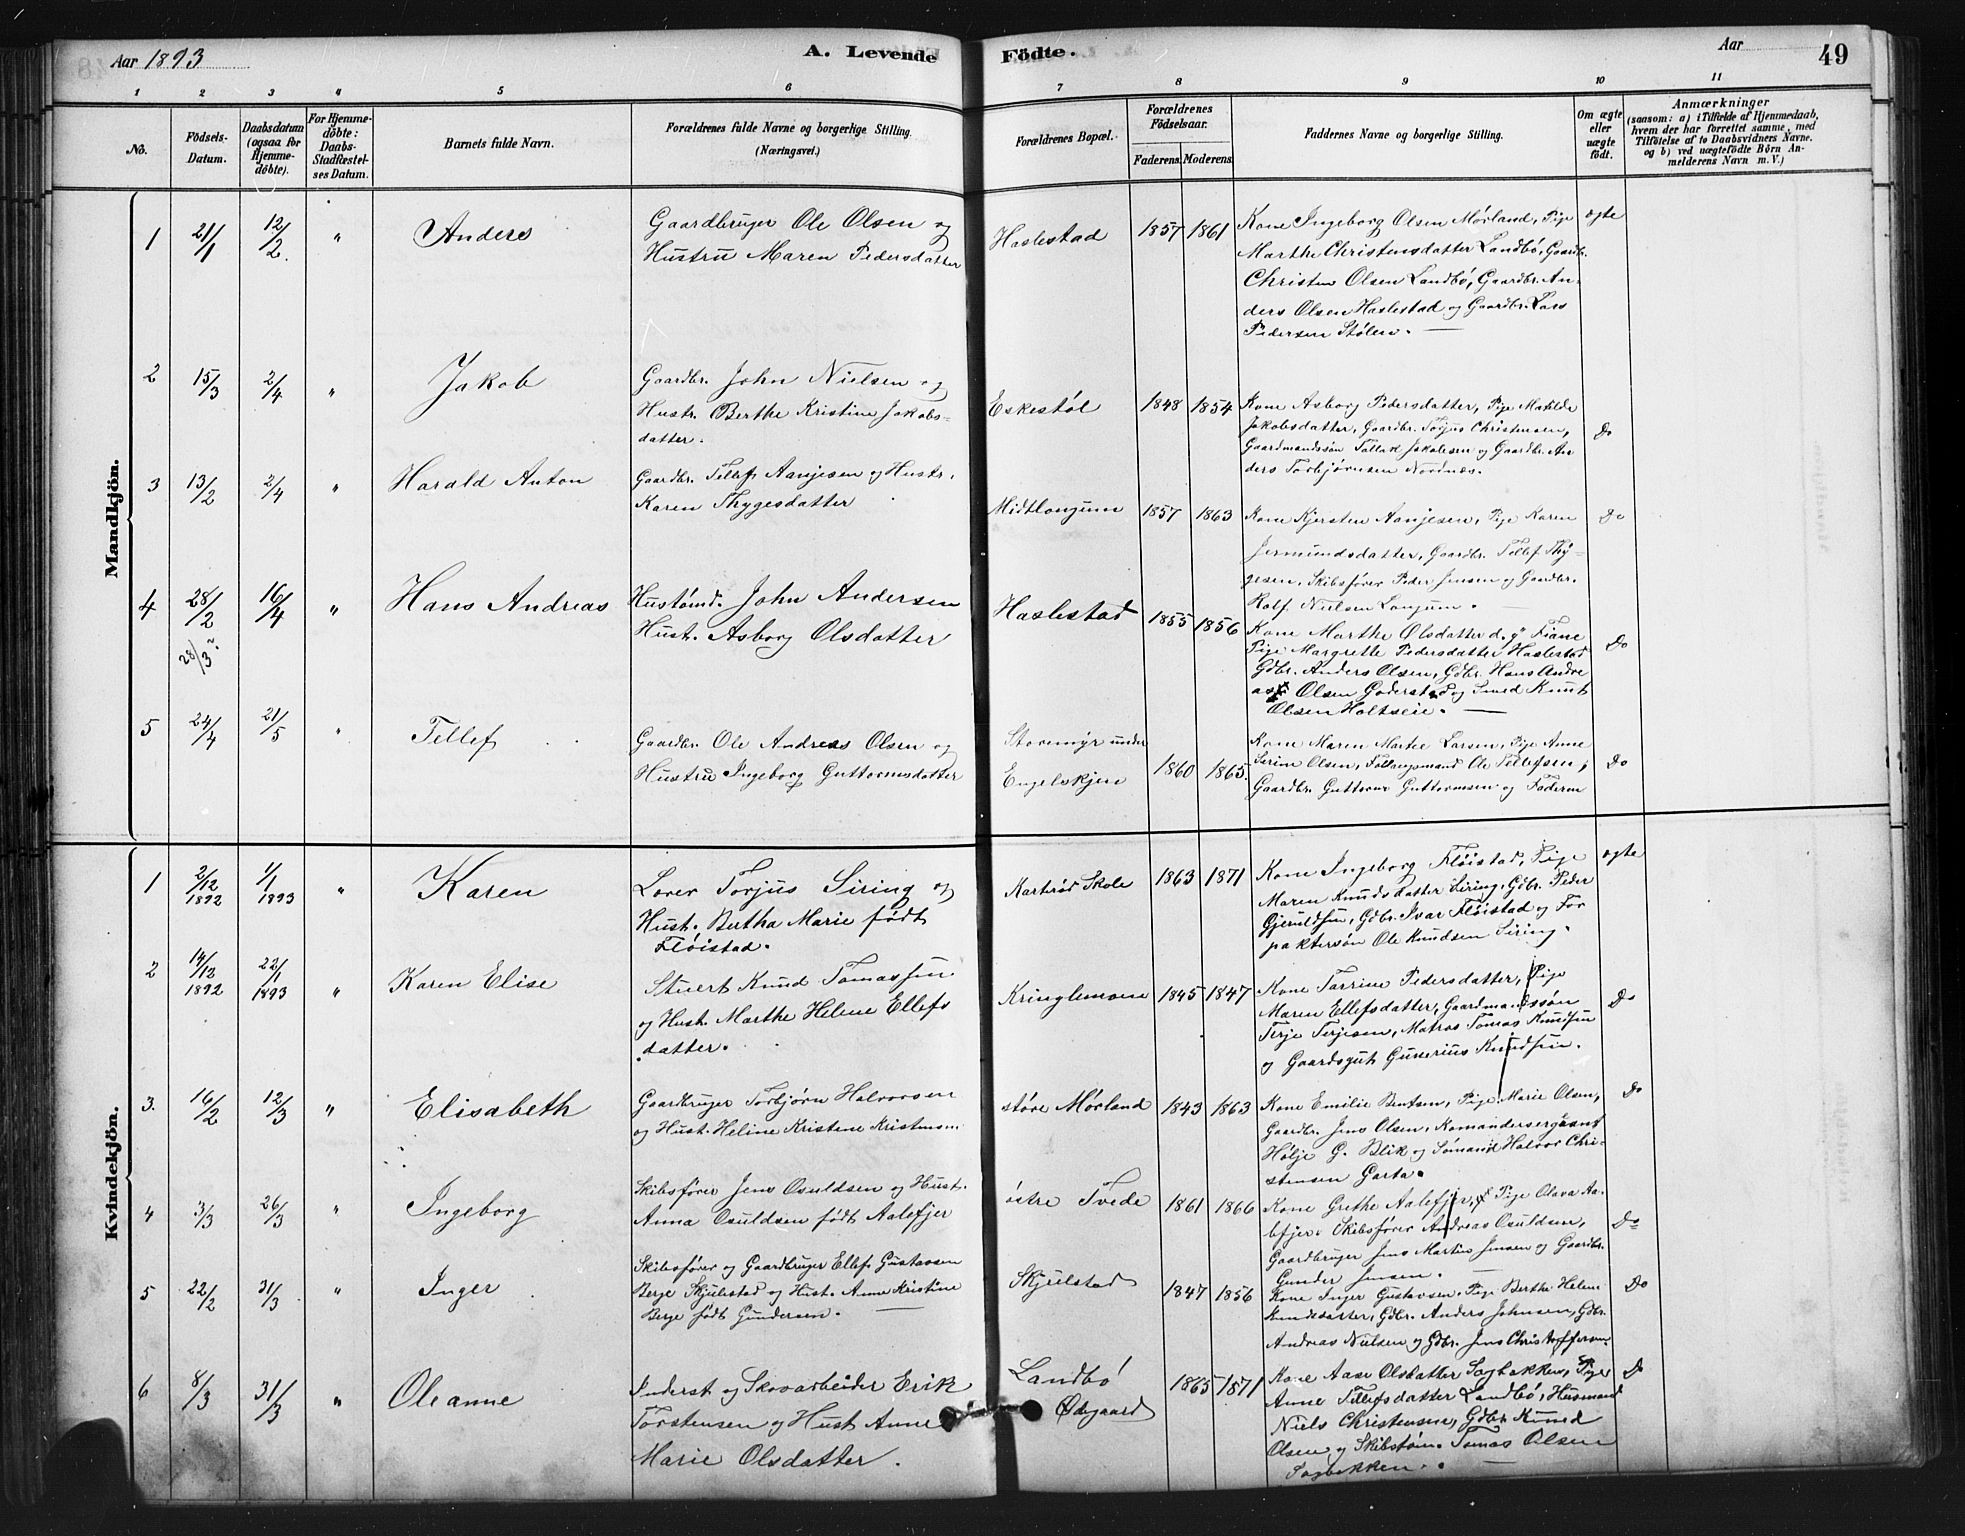 Aar 1893
A. Levende Födte.
Aar
49
1 2 3 4 5 6 7 8 9 10 11
No.
Födsels-
Datum.
Daabsdatum
(ogsaa for
Hjemme-
döbte).
For Hjemme-
döbte:
Daabs-
Stadfæstel-
ses Datum.
Barnets fulde Navn.
Forældrenes fulde Navne og borgerlige Stilling.
(Næringsvei.)
Forældrenes Bopæl.
Forældrenes
Födselsaar.
Faderens. Moderens.
Faddernes Navne og borgerlige Stilling.
Om ægte
eller
uægte
födt.
Anmærkninger
(saasom: a) i Tilfælde af Hjemmedaab,
hvem der har forrettet samme, med
Tilföielse af to Daabsvidners Navne,
og b) ved uægtefödte Börn An-
melderens Navn m. V.)
Mandkjön.
1 21/1 12/2. " Anders
Gaardbruger Ole Olsen og
Hustru Maren Pedersdatter
Haslestad 1857 1861
Kone Ingeborg Olsen Mørland, Pige
Marthe Christensdatter Landbö, Gaardbr.
Christen Olsen Landbö, Gaardbr. An-
ders Olsen Haslestad og Gaardbr. Lars
Pedersen Stølen.
ægte
2 15/3 2/4 " Jakob
Gaardbr. John Nielsen og
Hustr. Berthe Kristine Jakobs-
datter.
Eskestøl 1848 1854
Kone Asborg Pedersdatter, Pige Matilde
Jakobsdatter, Gaardbr. Torjus Christensen,
Gaardmandssön Tollak Jakobsen og Gaardbr. An
ders Torbjörnsen Nordnæs.
Do
3 13/2 2/4 " Harald Anton
Gaardbr. Tellef Aanjesen og Hustr.
Karen Thygesdatter
Midtlongum 1857 1863
Kone Kjersten Aanjesen, Pige Karen
Jermundsdatter, Gaardbr. Tellef Thy-
gesen, Skibsfører Peder Jensen og Gaardbr.
Rolf Nielsen Longum.
Do
4 28/2 16/4 " Hans Andreas
28/3?
Hustømd. John Andersen
Hust. Asborg Olsdatter
Haslestad 1855 1856
Kone Marthe Olsdatter d. y. Fiane
Pige Margrethe Pedersdatter Haslestad
Gdbr. Anders Olsen, Gdbr. Hans Andre
as Olsen Goderstad og Smed Knut
Olsen Holtseie.
Do
5 24/4 21/5 " Tellef
Gaardbr. Ole Andreas Olsen og
Hustru Ingeborg Guttormsdatter
Storemyr under
Engelskjen
1860 1865.
Kone Maren Martee Larsen, Pige Anne
Serine Olsen, Føllaugsmand Ole Tellefsen,
Gaardbr. Guttorm Guttormsen og Faderen
Do
Kvindekjön.
1 2/12 1892 1/1 1893 " Karen
Lærer Torjus Siring og
Hust. Bertha Marie født
Flöistad.
Karteröd Skole 1863 1871
Kone Ingeborg Flöistad, Pige
Maren Knudsdatter Siring, Gdbr. Peder
Gjeruldsen, Gdbr. Ivar Flöistad og For
paktersön Ole Knudsen Siring.
ægte
2 14/12 1892 22/1 1893 " Karen Elise
Stuert Knud Tomassen
og Hust. Marthe Helene Ellefs
datter.
Kringlemoen 1845 1847
Kone Torrine Pedersdatter, Pige
Maren Ellefsdatter, Gaardmandssön
Terje Terjesen, Matros Tomas Knudsen
og Gaardsgut Gunerius Knudsen.
Do
3. 16/2 12/3 " Elisabeth
Gaardbruger Torbjørn Halvorsen
og Hust. Heline Kristene Kristensen
støre Mørland 1843 1863
Kone Emilie Bentsen, Pige Marie Olsen,
Gaardbr. Jens Olsen, Komandersergeant
Hølje G. Blik og Sømand Halvor Chri-
stensen Garta.
Do
4 3/3 26/3 " Ingeborg
Skibsfører Jens Osuldsen og Hust.
Anna Osuldsen født Aalefjer
östre Tvede 1861 1866
Kone Grethe Aalefjer, Pige Olava Aa-
lefjer, Skibsfører Andreas Osuldsen,
Gaardbruger Jens Martin Jensen og Gaardbr.
Gunder Jensen.
Do
5 22/2 31/3 " Inger
Skibsfører og Gaardbruger Ellef Gustavsen
Berge Skjulestad og Hust. Anne Kristine
Berge født Gundersen.
Skjulstad 1847 1856
Kone Inger Gustavsen, Pige Berthe Helene
Knudsdatter, Gdbr. Anders Johnsen, Gdbr.
Andreas Nielsen og Gdbr. Jens Christoffersen
Do
6 8/3 31/3 " Oleanne
Inderst og Skovarbeider Erik
Torstensen og Hust Anne
Marie Olsdatter.
Landbö
Ødegaard
1865 1871
Kone Aase Olsdatter Sagbekken, Pige
Anne Tellefsdatter Landbö, Husmand
Niels Christensen, Gdbr. Knud
Olsen og Skibstøm. Tomas Olsen
Sagbekken.
Do